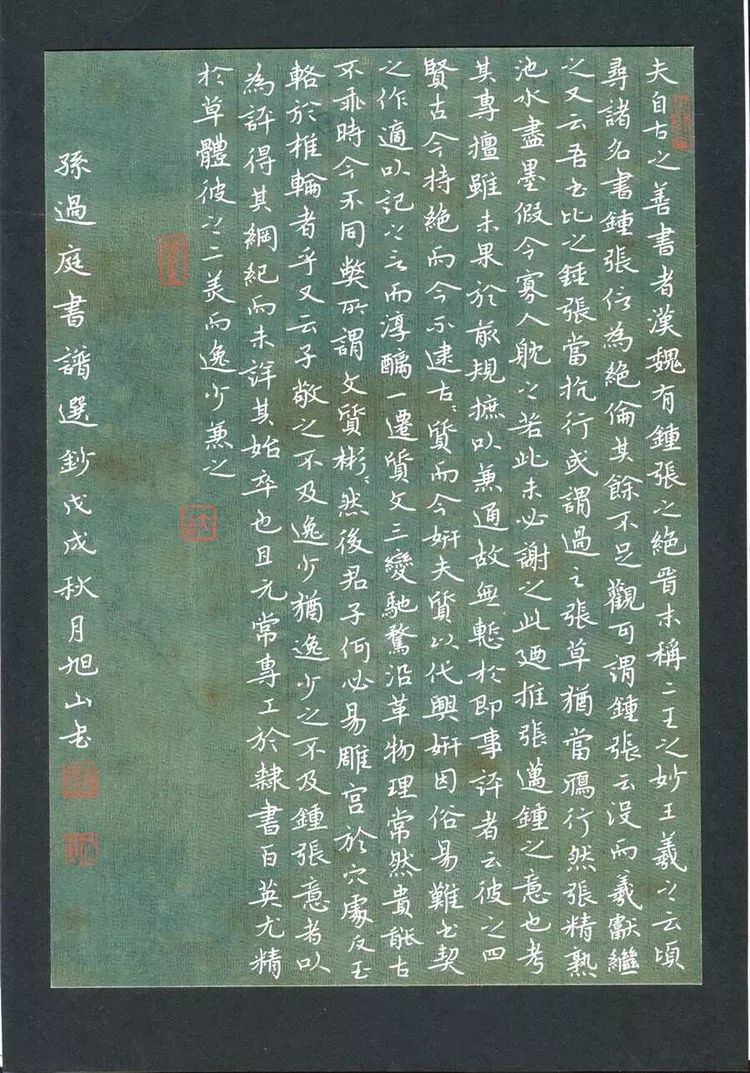 夫自古之善書者漢魏有鍾張之絶晉末稱二王之妙王羲之云頃
尋諸名書鍾張信為絶倫其餘不足觀可謂鍾張云沒而羲獻繼
之又云吾書比之鍾張當抗行或謂過之張草猶當鴈行然張精熟
池水盡墨假令寡人躭之若此未必謝之此廼推張邁鍾之意也考
其專擅雖未果於前規摭以兼通故無慙於即事評者云彼之四
賢古今特絶而今不逮古〻質而今妍夫質以代興妍因俗易難書契
之作適以記之言而淳醨一遷質文三變馳騖沿革物理常然貴能古
不乖時今不同弊所謂文質彬〻然後君子何必易雕宮於穴處反玉
輅於椎輪者乎又云子敬之不及逸少猶逸少之不及鍾張意者以
為評得其綱紀而未詳其始卒也且元常專工於隸書百英尤精
於草體彼之二美而逸少兼之
孫過庭書譜選鈔戊戌秋月旭山书